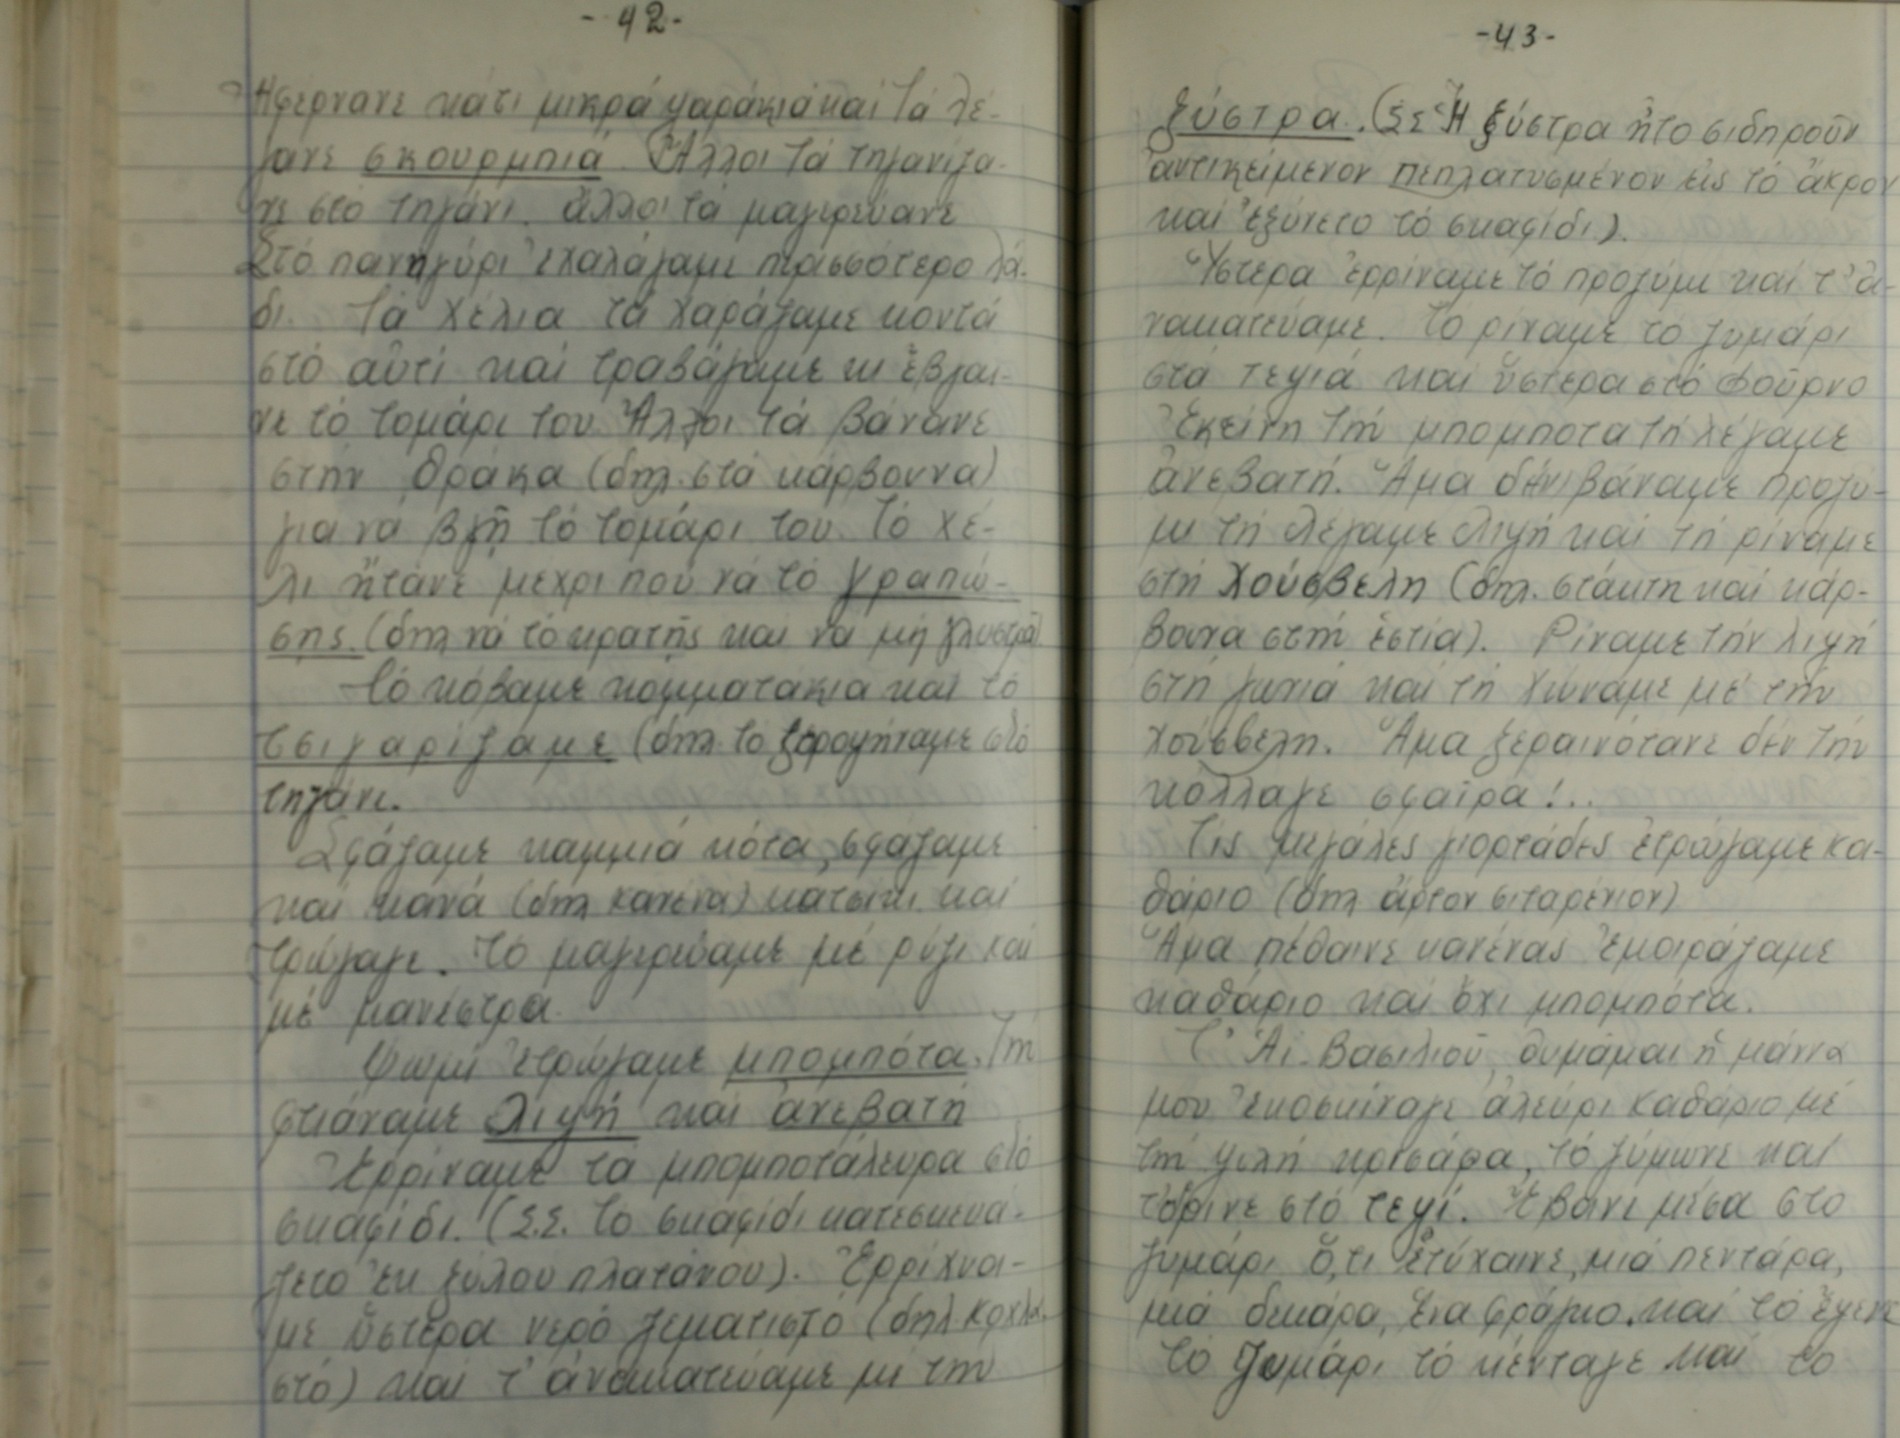 - 42 -
Ἠφέρνανε κάτι μικρά ψαράκια καί τά λέ-
γανε σκουρμπιά. Ἄλλοι τά τηγανίζα-
νε στό τηγάνι. ἄλλοι τά μαγειρεύανε
Στό πανηγύρι ἐχαλάγαμε περισσότερο λά-
δι. Τά χέλια τά χαράζαμε κοντά
στό αὐτί καί τραβάγαμε κι ἔβγαι-
νε τό τομάρι του. Ἄλλοι τά βάνανε
στήν θράκα (δηλ. στά κάρβουνα)
για νά βγῆ τό τομάρι του. Τό χέ-
λι ἤτανε μέχρι πού νά τό γραπώ-
σης. (δηλ νά τό κρατῆς καί να μή γλυστρᾶ)
Τό κόβαμε κομματάκια καί τό
τσιγαρίζαμε (δηλ. τό ξεροψήναμε στό
τηγάνι.
Σφάζαμε καμμιά κότα, σφάζαμε
καί κανά (δηλ κανένα) κατσίκι καί
τρώγαμε. Τό μαγειρεύαμε μέ ρύζι καί
μέ μανέστρα.
Ψωμί ἐτρώγαμε μπομπότα. Τή
φτιάναμε λιψή καί ἀνεβατή
Ἐρρίναμε τά μπομποτάλευρα στό
σκαφίδι. (Σ.Σ. Τό σκαφίδι κατεσκευά-
ζετο ἐκ ξύλου πλατάνου). Ἐρρίχνα-
με ὕστερα νερό ζεματιστό (δηλ κοχλα-
στό) καί τ' ἀνακατεύαμε μέ τήν
- 43 -
ξύστρα. (ΣΣ Ἡ ξύστρα ἦτο σιδηροῦν
ἀντικείμενον πεπλατυσμένον εἰς τό ἄκρον
καί ἐξύνετο τό σκαφίδι).
Ὕστερα ἐρρίναμε τό προζύμι καί τ' ἀ-
νακατεύαμε. Τό ρίναμε τό ζυμάρι
στά τεψιά καί ὕστερα στό φοῦρνο
Ἐκείνη τήν μπομπότα τή λέγαμε
ἀνεβατή. Ἅμα δέν βάναμε προζύ-
μι τή λέγαμε λιψή καί τή ρίναμε
στή χούσβελη (δηλ. στάκτη καί κάρ-
βουνα στήν ἑστία). Ρίναμε τήν λιψή
στή γωνιά καί τή χώναμε μέ τήν
χούσβελη. Ἅμα ξεραινότανε δέν τήν
κόλλαγε σφαῖρα!..
Τίς μεγάλες γιορτάδες ἐτρώγαμε κα-
θάριο (δηλ ἄρτον σιταρένιον)
Ἅμα πέθαινε κανένας ἐμοιράζαμε
καθάριο καί ὄχι μπομπότα.
Τ' Ἁι-Βασιλιοῦ, θυμάμαι ἡ μάνα
μου ἐκοσκίναγε ἀλεύρι καθάριο μέ
τήν ψιλή κρισάρα, τό ζύμωνε καί
τὄρινε στό τεψί. Ἔβανε μέσα στο
ζυμάρι ὅ,τι ἐτύχαινε, μιά πεντάρα,
μιά δεκάρα, ἕνα φράγκο. καί τό ἔψενε
Τό ζυμάρι τό κένταγε καί τό